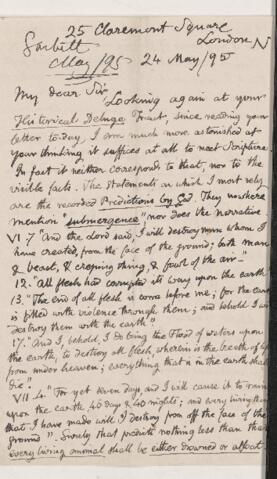 25 Claremont Square
London N
Garbett
May/95 24 May/95
My dear Sir
Looking again at your
Historical Deluge Tract, since reading your
letter to-day, I am much more astonished at
your thinking it suffices at all to meet Scripture.
In fact it neither corresponds to that, nor to the
visible facts. The statements on which I most rely
are the recorded Predictions by God. They nowhere
mention "submergence" nor does the narrative
VI. 7 "And the Lord said, I will destroy man whom I
have created, from the face of the ground; both man
& beast, & creeping thing, & fowl of the air."
12. "All flesh had corrupted its way upon the earth
13. "The end of all flesh is come before me; for the earth
is filled with violence through them; and behold I will
destroy them with the earth."
17. "And I, behold, I do bring the Flood of waters upon
the earth, to destroy all flesh, wherein is the breath of life
from under heaven; everything that is in the earth shall
die".
VII. 4. "For yet seven days and I will cause it to rain
upon the earth 40 days & 40 nights; and every living thing
that I have made will I destroy from off the face of the
ground". Surely that predicts nothing less than that
every living animal shall be either drowned or